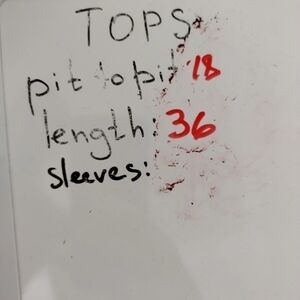 TOPS
pit to pit 18
length: 36
sleeves: